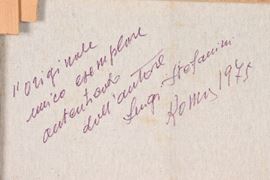 l'originale
unico esemplare
autenticato
dall'autore
Luigi Stefanini
Roma 1975